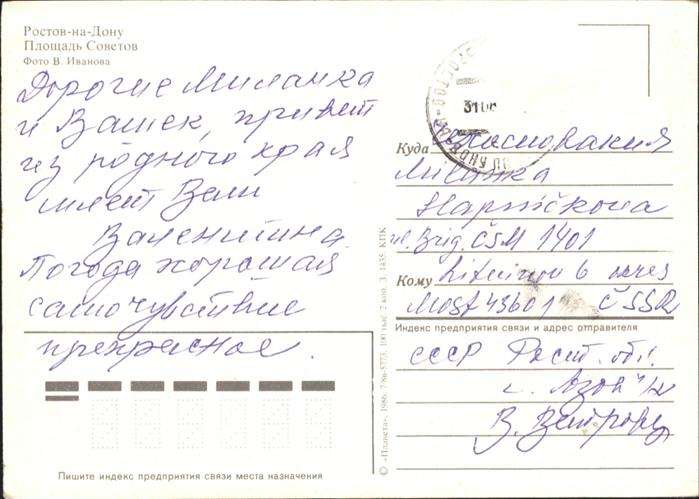 Ростов-на-Дону
Площадь Советов
Фото В. Иванова
Дорогие Миланка
и Вашек, привет
из родного края
шлет Вам
Валентина.
Погода хорошая
самочувствие
прекрасное.
Пишите индекс предприятия связи места назначения
© «Планета», 1986.
З. 1435. КПК
31 08
Куда
Чехословакия
Миланка
ul. Brig. ČSM 1401
Кому
Litvínov 6 okres
Most 43601 ČSSR
Индекс предприятия связи и адрес отправителя
СССР Рост. обл.
г. Азов
В.